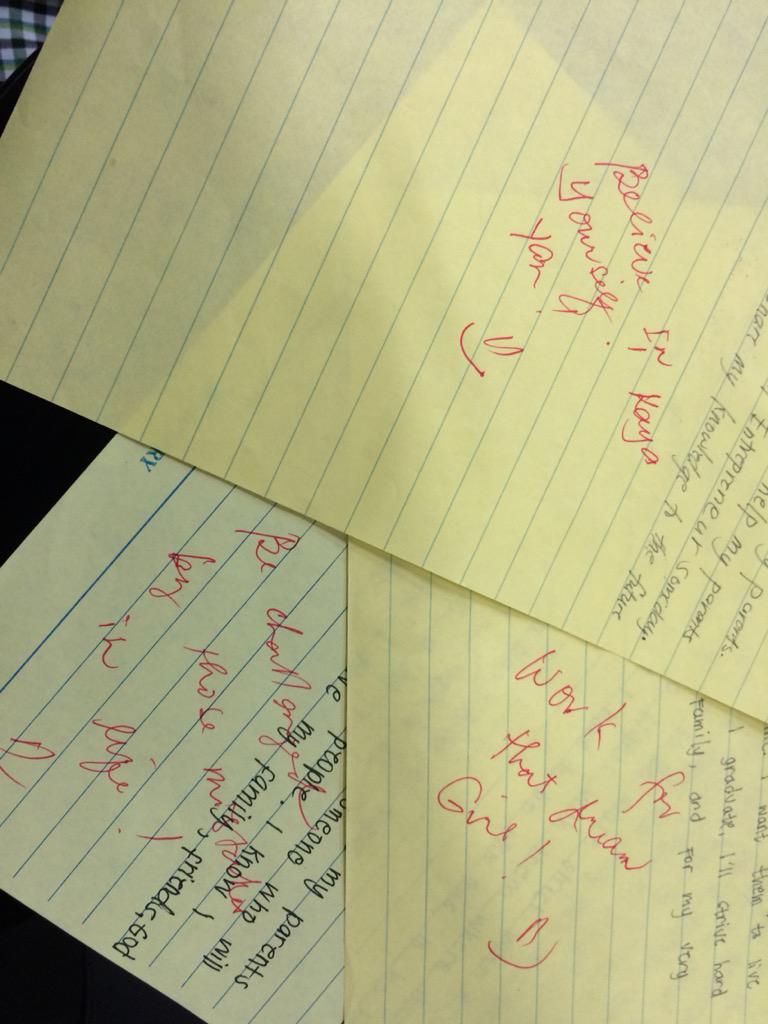 Believe In Kaya
yourself.
yan!
my parents.
help my parents
Entrepreneur someday.
my knowledge to the future
Work for
that dream
Girl!
I want them to live
I graduate, I'll strive hard
family, and for my very
RY
Be challenged
by those mistakes
in life!
my parents
people. someone who
my family. I know I will
friends, God